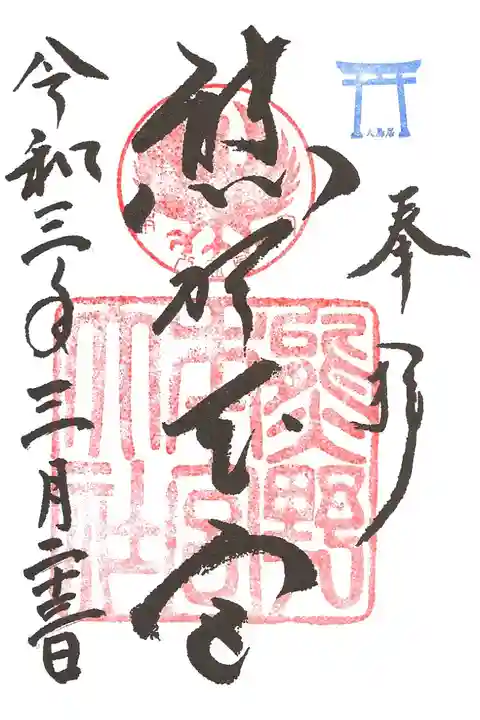 大鳥居
奉拝
熊野本宮
熊野
本宮
大社
令和三年三月二十三日